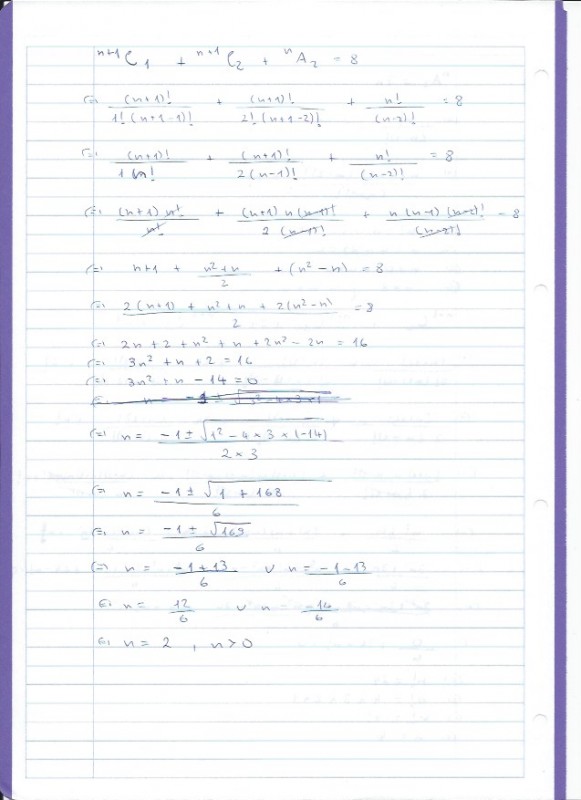 ⁿ⁺¹C₁ + ⁿ⁺¹C₂ + ⁿA₂ = 8
(=) (n+1)! / 1!(n+1-1)! + (n+1)! / 2!(n+1-2)! + n! / (n-2)! = 8
(=) (n+1)! / 1 n! + (n+1)! / 2(n-1)! + n! / (n-2)! = 8
(=) (n+1) n! / n! + (n+1) n (n-1)! / 2 (n-1)! + n (n-1) (n-2)! / (n-2)! = 8
(=) n+1 + n²+n / 2 + (n² - n) = 8
(=) 2(n+1) + n²+n + 2(n²-n) / 2 = 8
(=) 2n + 2 + n² + n + 2n² - 2n = 16
(=) 3n² + n + 2 = 16
(=) 3n² + n - 14 = 0
(=) n = -1 ± √1² - 4×3×(-14) / 2×3
(=) n = -1 ± √1 + 168 / 6
(=) n = -1 ± √169 / 6
(=) n = -1+13 / 6 ∨ n = -1-13 / 6
(=) n = 12 / 6 ∨ n -14 / 6
(=) n = 2 , n>0